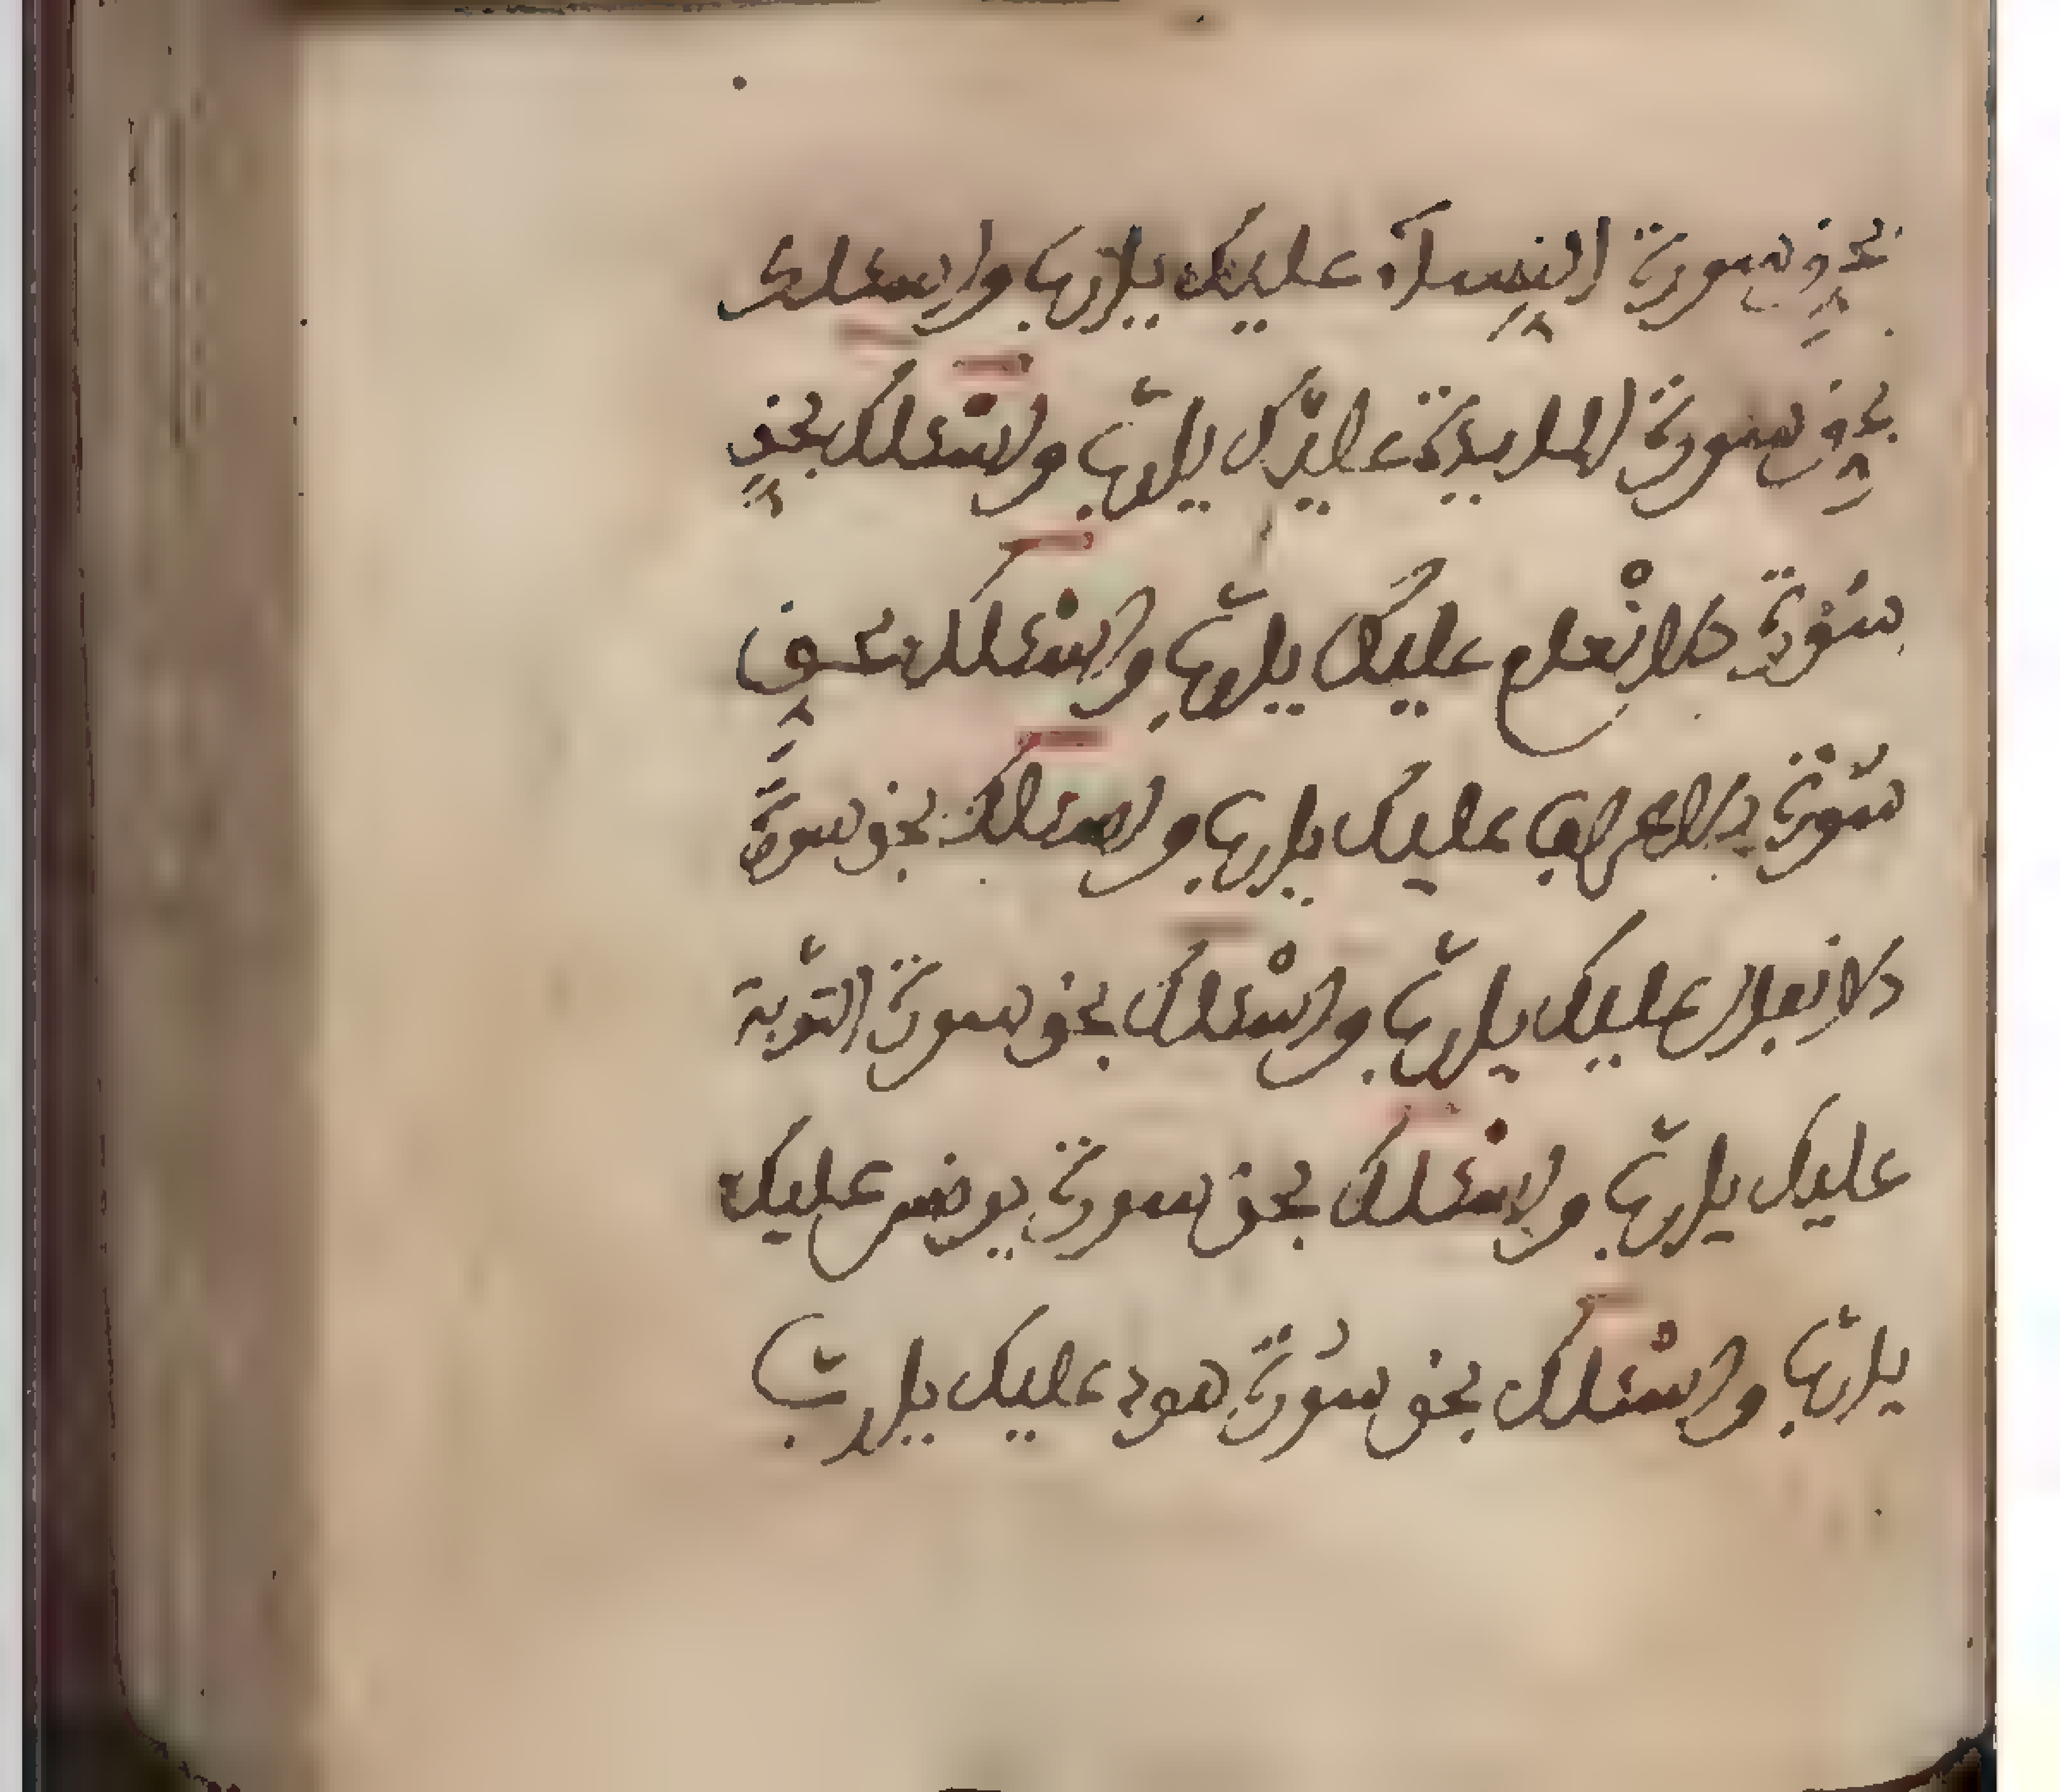 بحق سورة النساء عليك يارب واسئلك
بحق سورة المايدة عليك يارب واسئلك بحق
سورة الانعام عليك يارب واسئلك بحق
سورة الاعراف عليك يارب واسئلك بحق سورة
الانفال عليك يارب واسئلك بحق سورة التوبة
عليك يارب واسئلك بحق سورة يونس عليك
يارب واسئلك بحق سورة هود عليك يارب